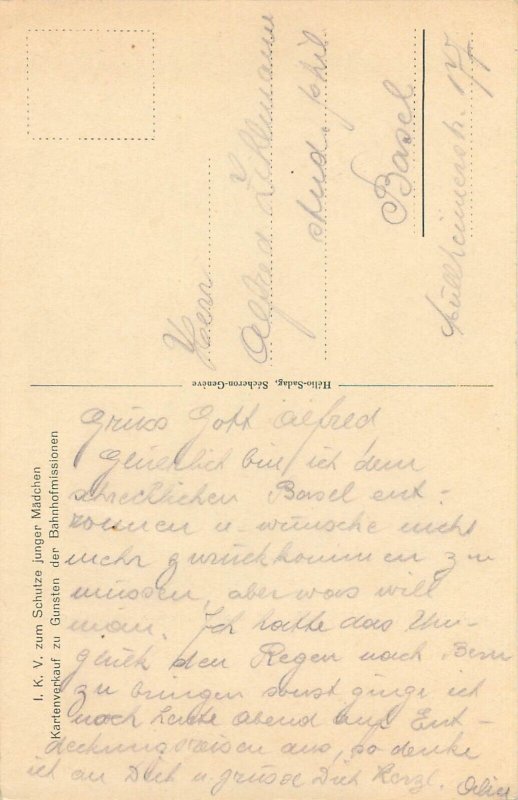 Herrn
Alfred Lehmann
stud. phil
Basel
Müllheimerstr. 177
Hélio-Sadag, Sécheron-Genève
I. K. V. zum Schutze junger Mädchen
Kartenverkauf zu Gunsten der Bahnhofmissionen
Grüss Gott Alfred
Glücklich bin ich dem
schrecklichen Basel ent-
ronnen u. wünsche nicht
mehr zurückkommen zu
müssen, aber was will
man. Ich hatte das Un-
glück den Regen nach Bern
zu bringen sonst ginge ich
noch heute Abend auf Ent-
deckungsreisen aus, so denke
ich an Dich u. grüsse Dich herzl.